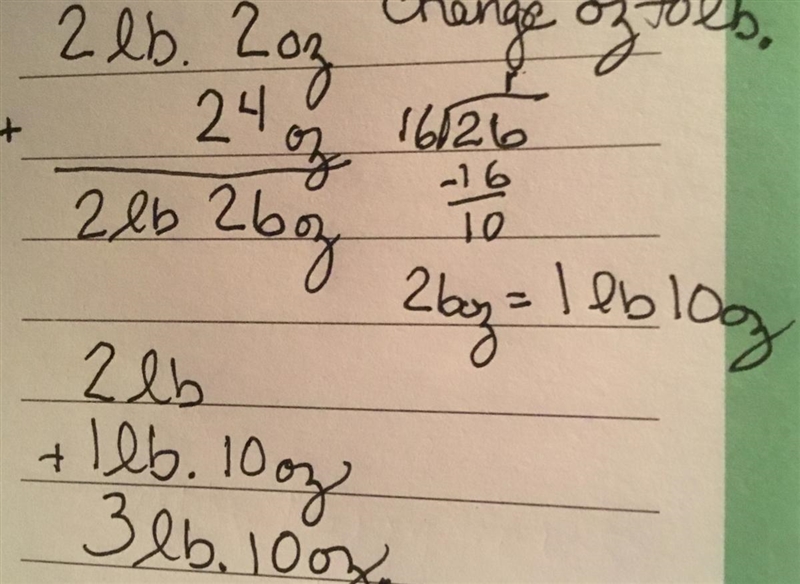 2 lb. 2 oz
+ 24 oz
2 lb 26 oz
Change oz to lb.
1
16)26
-16
10
26 oz = 1 lb 10 oz
2 lb
+ 1 lb. 10 oz
3 lb. 10 oz.